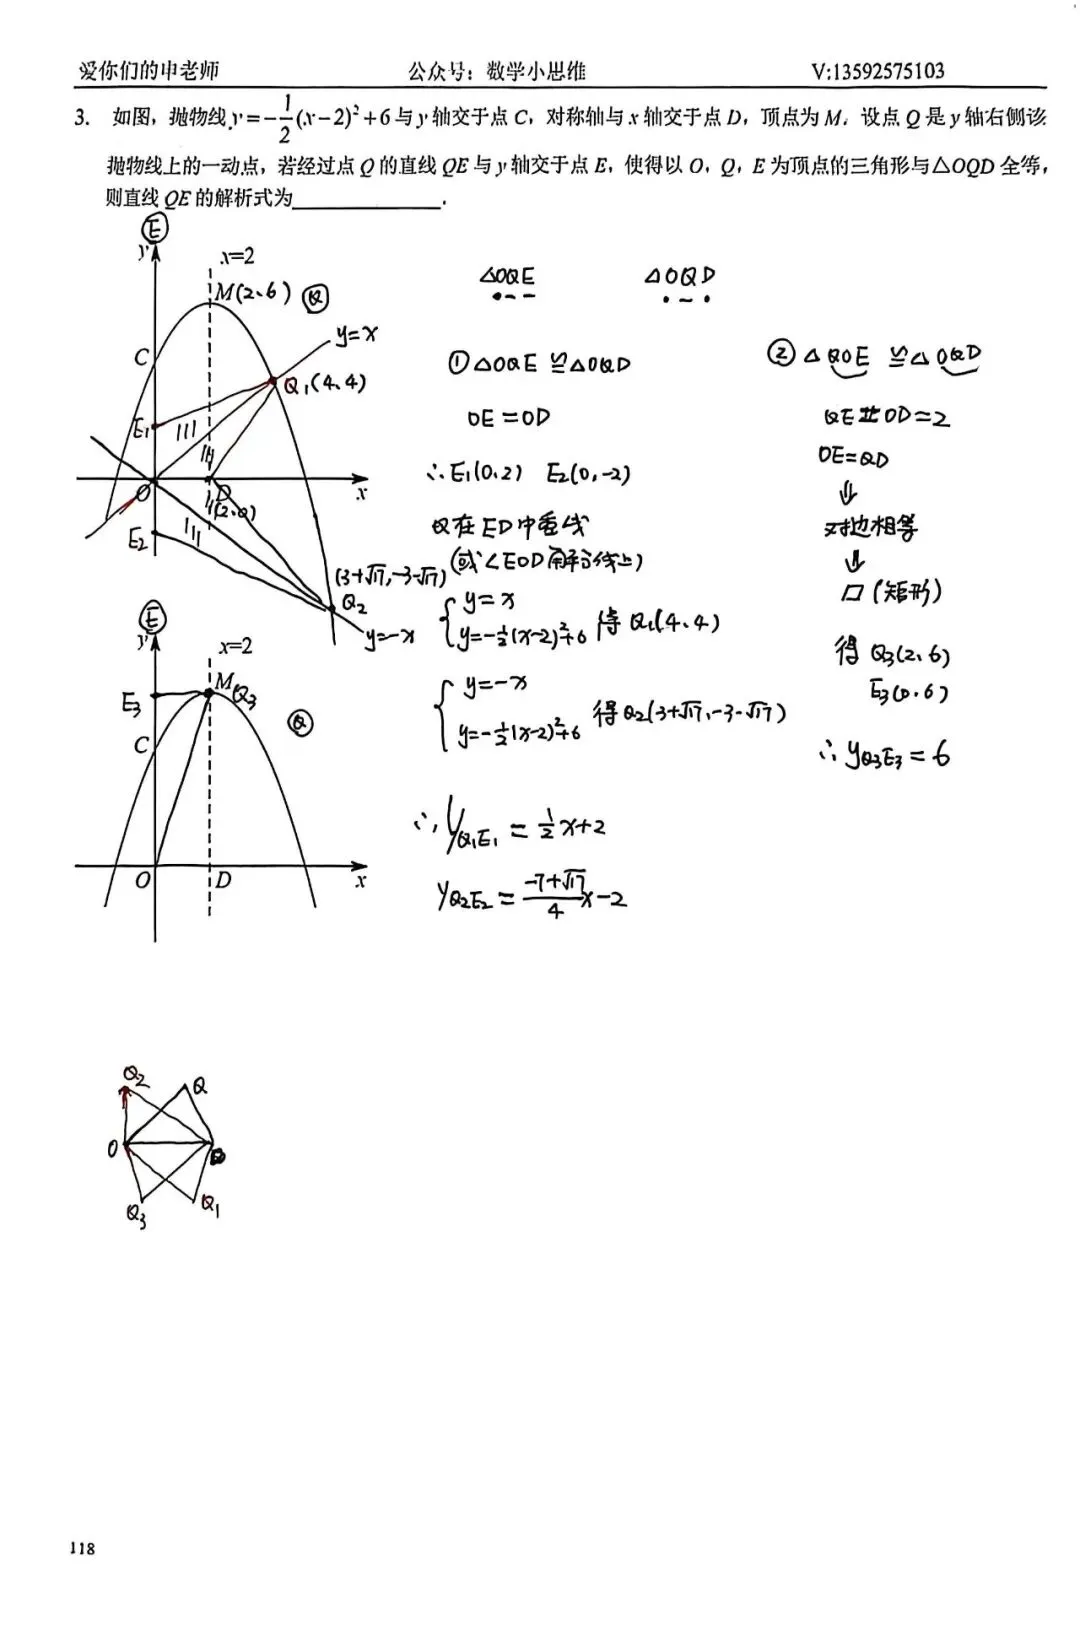 爱你们的申老师 公众号：数学小思维 V:13592575103
3. 如图，抛物线y=-1/2(x-2)²+6与y轴交于点C，对称轴与x轴交于点D，顶点为M．设点Q是y轴右侧该
抛物线上的一动点，若经过点Q的直线QE与y轴交于点E，使得以O，Q，E为顶点的三角形与△OQD全等，
则直线QE的解析式为．
Ⓔ
y
x=2
M(2、6) Ⓠ
y=x
C
Q₁(4、4)
E₁
O
D
(2、0)
x
E₂
(3+√17,-3-√17)
Q₂
y=-x
△OQE △OQD
① △OQE ≌ △OQD
OE=OD
∴E₁(0,2) E₂(0,-2)
Q在ED中垂线
(或∠EOD角平分线上)
{ y=x
y=-1/2(x-2)²+6 得Q₁(4、4)
{ y=-x
y=-1/2(x-2)²+6 得Q₂(3+√17,-3-√17)
∴yQ₁E₁=1/2x+2
yQ₂E₂=(-7+√17)/4x-2
② △QOE ≌ △OQD
QE=OD=2
OE=QD
⇓
对边相等
⇓
□(矩形)
得Q₃(2、6)
E₃(0、6)
∴yQ₃E₃=6
Ⓔ
y
x=2
E₃
M
Q₃
Ⓠ
C
O
D
x
Q₂
Q
O
D
Q₃
Q₁
118